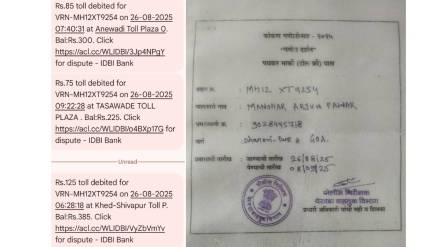 Rs.85 toll debited for
VRN-MH12XT9254 on 26-08-2025
07:40:31 at Anewadi Toll Plaza 0.
Bal:Rs.300. Click
https://acl.cc/WLIDBI/3Jp4NPgY
for dispute - IDBI Bank
Rs.75 toll debited for
VRN-MH12XT9254 on 26-08-2025
09:22:28 at TASAWADE TOLL
PLAZA . Bal:Rs.225. Click
https://acl.cc/WLIDBI/o4BXp17G for
dispute - IDBI Bank
Unread
Rs.125 toll debited for
VRN-MH12XT9254 on 26-08-2025
06:28:18 at Khed-Shivapur Toll P.
Bal:Rs.385. Click
https://acl.cc/WLIDBI/VyZbVmYv
for dispute - IDBI Bank
कोकण गणेशोत्सव - २०२५
"गणेश दर्शन"
पथकर माफी (टोल फ्री) पास
MH12 XT9254
MANOHAR ARJUN PAWAR
3028445718
GOA.
26/08/25
पोलीस निरीक्षक
वाहतूक विभाग